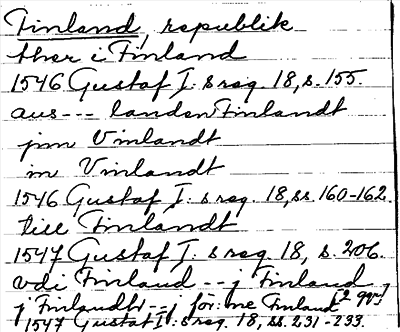 Finland, republik
ther i Finland
1546 Gustaf I: s reg. 18, s. 155.
aus--- landen Finlandt
jnn Vinlandt
in Vinlandt
1546 Gustaf I: s reg. 18, ss. 160-162.
till Finlandt
1547 Gustaf I: s reg. 18, s. 206.
vdi Finland --- j Finland
j Finlandh --- j för:ne Finland [2 ggr]
1547 Gustaf I: s reg. 18, ss. 231-233.